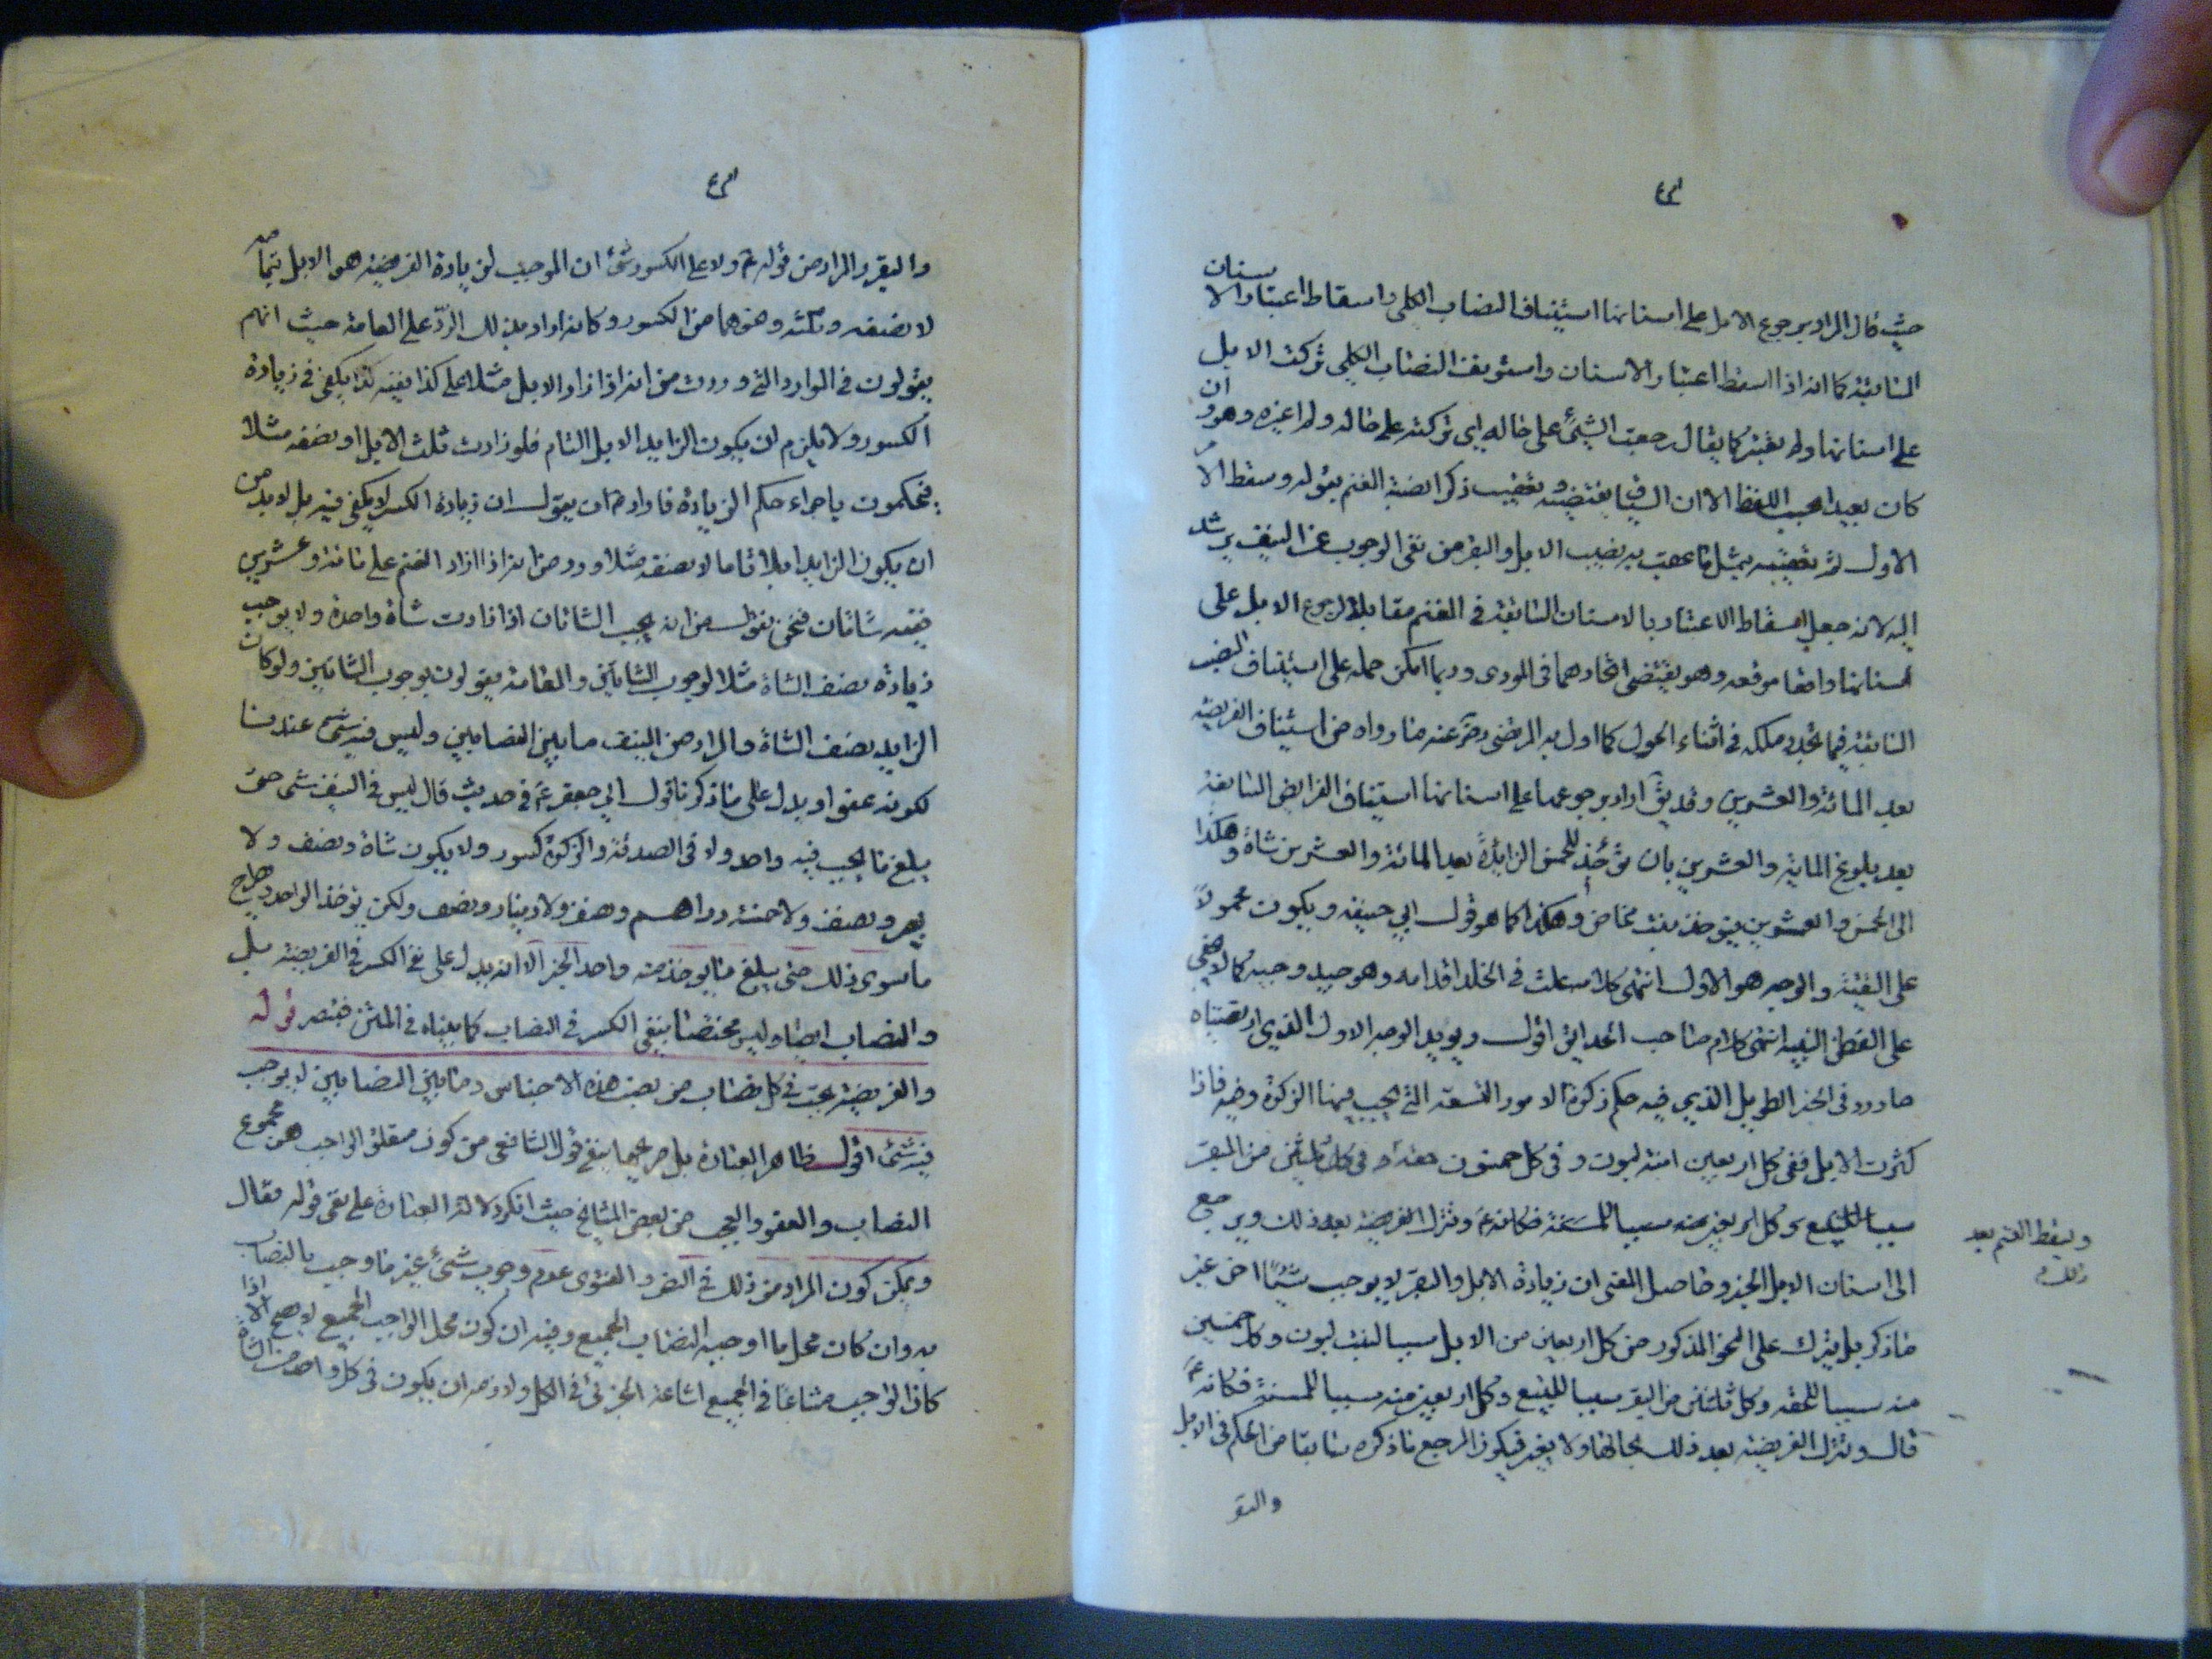 حيث قال المراد برجوع الابل على اسنانها استيناف النصاب الكلى واسقاط اعتبار الاسنان
السابقة كما انه اذا اسقط اعتبار الاسنان واستونف النصاب الكلى تركت الابل
على اسنانها ولم تعتبر كما يقال رجعت الشئ على حاله اى تركته على حاله ولم اغيره وهو وان
كان بعيدا بحسب اللفظ الا ان السياق يقتضيه وتعقيب ذكر انصبة الغنم بقوله وسقط الامر
الاول ثم تعقيبه بمثل ما عقب به نصيب الابل والبقر من نفى الوجوب عن النيف يرشد
اليه لانه جعل اسقاط الاعتبار بالاسنان السابقة في الغنم مقابلا لرجوع الابل على
اسنانها واقعا موقعه وهو يقتضى اتحادهما فى المودى وربما امكن حمله على استيناف النصب
السابقة فيما تجدد ملكه فى اثناء الحول كما اول به المرتضى رض عنه ما رواه من استيناف الفريضة
بعد المائة والعشرين وقد يق اراد برجوعها على اسنانها استيناف الفرايض السابقة
بعد بلوغ الماية والعشرين بان تؤخذ للخمس الزايدة بعد المائة والعشرين شاة وهكذا
الى الخمس والعشرين فيؤخذ بنت مخاض وهكذا كما هو قول ابى حنيفه ويكون محمولا
على التقية والوجه هو الاول انتهى كلامه علت فى الخلد اقدامه وهو جيد وجيه كما لا يخفى
على الفطن النبيه انتهى كلام صاحب الحدايق اقول ويويد الوجه الاول الذي ارتضياه
ما ورد فى الخبر الطويل الذي فيه حكم زكوة الامور التسعة التى يجب فيها الزكوة وفيه فاذا
كثرت الابل ففى كل اربعين ابنة لبون وفى كل خمسون حقة او فى كل ثلثين من البقر
سببا للتبيع وكل اربعين منه سببا للمسنة فكانه ع وتترك الفريضة بعد ذلك ويرجع
ويسقط الغنم بعد
ذلك
الى اسنان الابل الخبر وحاصل المعنى ان زيادة الابل والبقر لا يوجب شيئا اخر غير
ما ذكر بل يترك على النحو المذكور من كل اربعين من الابل سببا لبنت لبون وكل خمسين
منه سببا للحقه وكل ثلثين من البقر سببا للتبيع وكل اربعين منه سببا للمسنة فكانه ع
قال وتترك الفريضة بعد ذلك بحالها ولا يغير فيكون المرجع ما ذكره سابقا من الحكم فى الابل
والبقر
والبقر والمراد من قوله ع ولا على الكسور شئ ان الموجب لزيادة الفريضة هو الابل بتمامه
لا نصفه وثلثه ونحوهما من الكسور وكانه اراد بذلك الرد على العامة حيث انهم
يقولون فى الموارد التى وردت من انه اذا زاد الابل مثلا على كذا ففيه كذا يكفى فى زيادة
الكسور ولا يلزم ان يكون الزايد الابل التام فلو زادت ثلث الابل او نصفه مثلا
فيحكمون باجراء حكم الزيادة فاراد ع ان يقول ان زيادة الكسر لا يكفى فيه بل لا بد من
ان يكون الزايد ابلا تاما لا نصفه مثلا وورد من انه اذا زاد الغنم على مائة وعشرين
ففيه شاتان فنحن نقول من انه يجب الشاتان اذا زادت شاة واحدة ولا يوجب
زيادة نصف الشاة مثلا لوجوب الشاتين والعامة يقولون بوجوب الشاتين ولو كان
الزايد نصف الشاة والمراد من النيف ما بين النصابين وليس فيه شئ عندنا
لكونه عفوا ويدل على ما ذكرنا قول ابى جعفر ع فى حديث قال ليس فى النيف شئ حتى
يبلغ ما يجب فيه واحد ولا فى الصدقة والزكوة كسور ولا يكون شاة ونصف ولا
بعير ونصف ولا خمسة دراهم ونصف ولا دينار ونصف ولكن يؤخذ الواحد ويطرح
ما سوى ذلك حتى يبلغ ما يؤخذ منه واحد الخبر الا انه يدل على نفى الكسر فى الفريضة بل
والنصاب ايضا وليس مختصا بنفى الكسر فى النصاب كما بيناه فى المتن فتبصر قوله
والفريضة تجب فى كل نصاب من نصب هذه الاجناس وما بين النصابين لا يوجب
فيه شئ اقول ظاهر العبارة بل صريحها ينفى قول الشافعى من كون متعلق الواجب هو مجموع
النصاب والعفو والعجب من بعض المشايخ حيث انكر دلالة العبارة على نفى قوله فقال
ويمكن كون المراد من ذلك فى النص والفتوى عدم وجوب شئ غير ما وجب بالنصاب
به وان كان محل ما اوجبه النصاب الجميع وفيه ان كون محل الواجب الجميع لا يصح الا اذا
كان الواجب مشاعا فى الجميع اشاعة الجزئى فى الكل ولازمه ان يكون فى كل واحد من الشاة